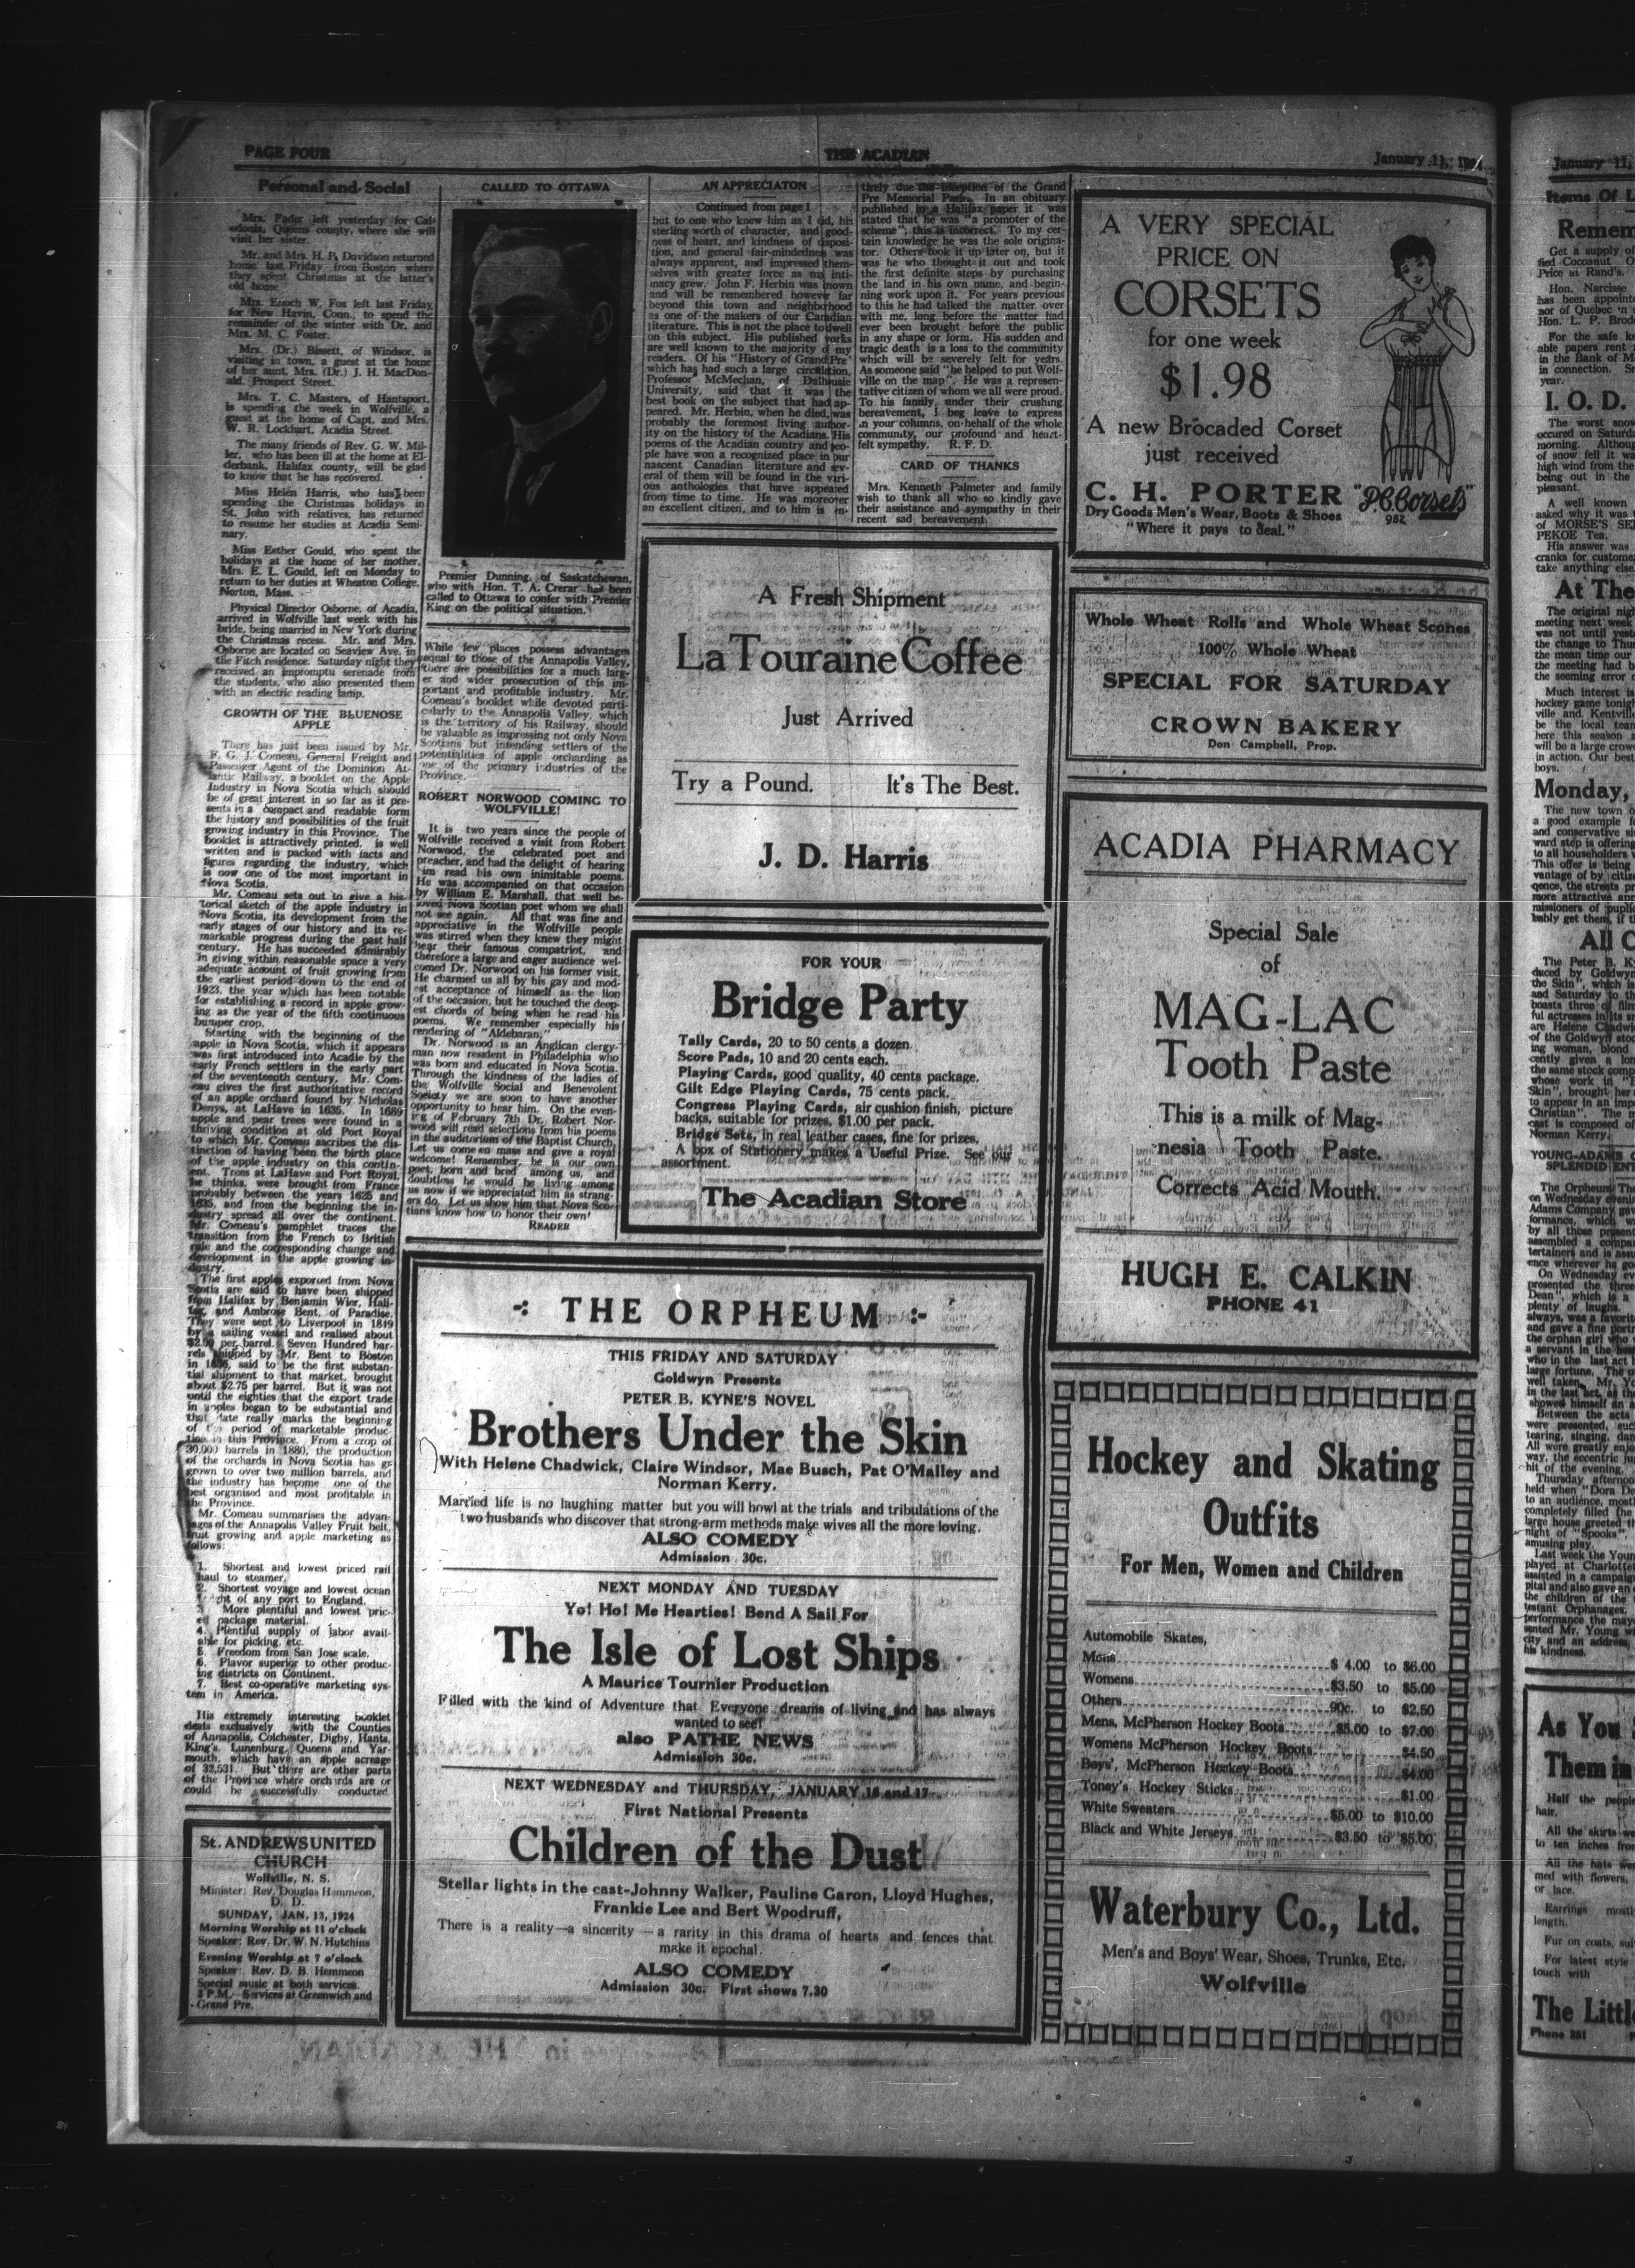 PAGE FOUR
THE ACADIAN
January 11, 1924
Personal and Social
Mrs. Fader left yesterday for Cal-
edonia, Queens county, where she will
visit her sister.
Mr. and Mrs. H. P. Davidson returned
home last Friday from Boston where
they spent Christmas at the latter's
old home.
Mrs. Enoch W. Fox left last Friday
for New Havin, Conn., to spend the
remainder of the winter with Dr. and
Mrs. M. C. Foster.
Mrs. (Dr.) Bissett, of Windsor, is
visiting in town, a guest at the home
of her aunt, Mrs. (Dr.) J. H. MacDon-
ald, Prospect Street.
Mrs. T. C. Masters, of Hantsport,
is spending the week in Wolfville, a
guest at the home of Capt. and Mrs.
W. R. Lockhart, Acadia Street.
The many friends of Rev. G. W. Mil-
ler, who has been ill at the home at El-
derbank, Halifax county, will be glad
to know that he has recovered.
Miss Helen Harris, who has been
spending the Christmas holidays in
St. John with relatives, has returned
to resume her studies at Acadia Semi-
nary.
Miss Esther Gould, who spent the
holidays at the home of her mother,
Mrs. E. L. Gould, left on Monday to
return to her duties at Wheaton College,
Norton, Mass.
Physical Director Osborne, of Acadia,
arrived in Wolfville last week with his
bride, being married in New York during
the Christmas recess. Mr. and Mrs.
Osborne are located on Seaview Ave. in
the Fitch residence. Saturday night they
received an impromptu serenade from
the students, who also presented them
with an electric reading lamp.
GROWTH OF THE BLUENOSE
APPLE
There has just been issued by Mr.
F. G. J. Comeau, General Freight and
Passenger Agent of the Dominion At-
lantic Railway, a booklet on the Apple
Industry in Nova Scotia which should
be of great interest in so far as it pre-
sents in a compact and readable form
the history and possibilities of the fruit
growing industry in this Province. The
booklet is attractively printed, is well
written and is packed with facts and
figures regarding the industry, which
is now one of the most important in
Nova Scotia.
Mr. Comeau sets out to give a his-
torical sketch of the apple industry in
Nova Scotia, its development from the
early stages of our history and its re-
markable progress during the past half
century. He has succeeded admirably
in giving within reasonable space a very
adequate account of fruit growing from
the earliest period down to the end of
1923, the year which has been notable
for establishing a record in apple grow-
ing as the year of the fifth continuous
bumper crop.
Starting with the beginning of the
apple in Nova Scotia, which it appears
was first introduced into Acadie by the
early French settlers in the early part
of the seventeenth century, Mr. Com-
eau gives the first authoritative record
of an apple orchard found by Nicholas
Denys, at LaHave in 1635. In 1689
apple and pear trees were found in a
thriving condition at old Port Royal
to which Mr. Comeau ascribes the dis-
tinction of having been the birth place
of the apple industry on this contin-
ent. Trees at LaHave and Port Royal,
he thinks, were brought from France
probably between the years 1625 and
1635, and from the beginning the in-
dustry spread all over the continent.
Mr. Comeau's pamphlet traces the
transition from the French to British
rule and the corresponding change and
development in the apple growing in-
dustry.
The first apples exported from Nova
Scotia are said to have been shipped
from Halifax by Benjamin Wier, Hali-
fax, and Ambrose Bent, of Paradise.
They were sent to Liverpool in 1849
by a sailing vessel and realised about
$2.00 per barrel. Seven Hundred bar-
rels shipped by Mr. Bent to Boston
in 1856, said to be the first substan-
tial shipment to that market, brought
about $2.75 per barrel. But it was not
until the eighties that the export trade
in apples began to be substantial and
that date really marks the beginning
of the period of marketable produc-
tion in this Province. From a crop of
30,000 barrels in 1880, the production
of the orchards in Nova Scotia has
grown to over two million barrels, and
the industry has become one of the
best organised and most profitable in
the Province.
Mr. Comeau summarises the advan-
tages of the Annapolis Valley Fruit belt,
fruit growing and apple marketing as
follows:
1. Shortest and lowest priced rail
haul to steamer.
2. Shortest voyage and lowest ocean
ght of any port to England.
3. More plentiful and lowest pric-
ed package material.
4. Plentiful supply of labor avail-
able for picking, etc.
5. Freedom from San Jose scale.
6. Flavor superior to other produc-
ing districts on Continent.
7. Best co-operative marketing sys-
tem in America.
His extremely interesting booklet
deals exclusively with the Counties
of Annapolis, Colchester, Digby, Hants,
King's, Lunenburg, Queens and Yar-
mouth, which have an apple acreage
of 32,531. But there are other parts
of the Province where orchards are or
could be successfully conducted.
St. ANDREWS UNITED
CHURCH
Wolfville, N. S.
Minister: Rev. Douglas Hemmeon,
D. D.
SUNDAY, JAN. 13, 1924
Morning Worship at 11 o'clock
Speaker: Rev. Dr. W. N. Hutchins
Evening Worship at 7 o'clock
Speaker: Rev. D. B. Hemmeon
Special music at both services.
3 P.M.—Services at Greenwich and
Grand Pre.
CALLED TO OTTAWA
Premier Dunning, of Saskatchewan,
who with Hon. T. A. Crerar has been
called to Ottawa to confer with Premier
King on the political situation.
While few places possess advantages
equal to those of the Annapolis Valley,
there are possibilities for a much larg-
er and wider prosecution of this im-
portant and profitable industry. Mr.
Comeau's booklet while devoted parti-
cularly to the Annapolis Valley, which
is the territory of his Railway, should
be valuable as impressing not only Nova
Scotians but intending settlers of the
potentialities of apple orcharding as
one of the primary industries of the
Province.
ROBERT NORWOOD COMING TO
WOLFVILLE!
It is two years since the people of
Wolfville received a visit from Robert
Norwood, the celebrated poet and
preacher, and had the delight of hearing
him read his own inimitable poems.
He was accompanied on that occasion
by William E. Marshall, that well be-
loved Nova Scotian poet whom we shall
not see again. All that was fine and
appreciative in the Wolfville people
was stirred when they knew they might
hear their famous compatriot, and
therefore a large and eager audience wel-
comed Dr. Norwood on his former visit.
He charmed us all by his gay and mod-
est acceptance of himself as the lion
of the occasion, but he touched the deep-
est chords of being when he read his
poems. We remember especially his
rendering of "Aldebaran."
Dr. Norwood is an Anglican clergy-
man now resident in Philadelphia who
was born and educated in Nova Scotia.
Through the kindness of the ladies of
the Wolfville Social and Benevolent
Society we are soon to have another
opportunity to hear him. On the even-
ing of February 7th Dr. Robert Nor-
wood will read selections from his poems
in the auditorium of the Baptist Church.
Let us come en mass and give a royal
welcome! Remember, he is our own
poet, born and bred among us, and
doubtless he would be living among
us now if we appreciated him as strang-
ers do. Let us show him that Nova Sco-
tians know how to honor their own!
READER
AN APPRECIATON
Continued from page 1
but to one who knew him as I did, his
sterling worth of character, and good-
ness of heart, and kindness of disposi-
tion, and general fair-mindedness was
always apparent, and impressed them-
selves with greater force as my inti-
macy grew. John F. Herbin was known
and will be remembered however far
beyond this town and neighborhood
as one of the makers of our Canadian
literature. This is not the place to dwell
on this subject. His published works
are well known to the majority of my
readers. Of his "History of Grand Pre"
which has had such a large circulation,
Professor McMechan, of Dalhousie
University, said that it was the
best book on the subject that had ap-
peared. Mr. Herbin, when he died, was
probably the foremost living author-
ity on the history of the Acadians. His
poems of the Acadian country and peo-
ple have won a recognized place in our
nascent Canadian literature and sev-
eral of them will be found in the vari-
ous anthologies that have appeared
from time to time. He was moreover
an excellent citizen, and to him is en-
tirely due the inception of the Grand
Pre Memorial Park. In an obituary
published in a Halifax paper it was
stated that he was "a promoter of the
scheme"; this is incorrect. To my cer-
tain knowledge he was the sole origina-
tor. Others took it up later on, but it
was he who thought it out and took
the first definite steps by purchasing
the land in his own name, and begin-
ning work upon it. For years previous
to this he had talked the matter over
with me, long before the matter had
ever been brought before the public
in any shape or form. His sudden and
tragic death is a loss to the community
which will be severely felt for years.
As someone said "he helped to put Wolf-
ville on the map". He was a represen-
tative citizen of whom we all were proud.
To his family, under their crushing
bereavement, I beg leave to express
in your columns, on behalf of the whole
community, our profound and heart-
felt sympathy. R. F. D.
CARD OF THANKS
Mrs. Kenneth Palmeter and family
wish to thank all who so kindly gave
their assistance and sympathy in their
recent sad bereavement.
A Fresh Shipment
La Touraine Coffee
Just Arrived
Try a Pound. It's The Best.
J. D. Harris
FOR YOUR
Bridge Party
Tally Cards, 20 to 50 cents a dozen
Score Pads, 10 and 20 cents each.
Playing Cards, good quality, 40 cents package.
Gilt Edge Playing Cards, 75 cents pack.
Congress Playing Cards, air cushion finish, picture
backs, suitable for prizes, $1.00 per pack.
Bridge Sets, in real leather cases, fine for prizes.
A box of Stationery makes a Useful Prize. See our
assortment.
The Acadian Store
THE ORPHEUM
THIS FRIDAY AND SATURDAY
Goldwyn Presents
PETER B. KYNE'S NOVEL
Brothers Under the Skin
With Helene Chadwick, Claire Windsor, Mae Busch, Pat O'Malley and
Norman Kerry.
Married life is no laughing matter but you will howl at the trials and tribulations of the
two husbands who discover that strong-arm methods make wives all the more loving.
ALSO COMEDY
Admission 30c.
NEXT MONDAY AND TUESDAY
Yo! Ho! Me Hearties! Bend A Sail For
The Isle of Lost Ships
A Maurice Tournier Production
Filled with the kind of Adventure that Everyone dreams of living and has always
wanted to see!
also PATHE NEWS
Admission 30c.
NEXT WEDNESDAY and THURSDAY, JANUARY 16 and 17
First National Presents
Children of the Dust
Stellar lights in the cast-Johnny Walker, Pauline Garon, Lloyd Hughes,
Frankie Lee and Bert Woodruff,
There is a reality—a sincerity—a rarity in this drama of hearts and fences that
make it epochal.
ALSO COMEDY
Admission 30c. First shows 7.30
A VERY SPECIAL
PRICE ON
CORSETS
for one week
$1.98
A new Brocaded Corset
just received
C. H. PORTER
Dry Goods Men's Wear, Boots & Shoes
"Where it pays to deal."
"P.C. Corsets"
982
Whole Wheat Rolls and Whole Wheat Scones
100% Whole Wheat
SPECIAL FOR SATURDAY
CROWN BAKERY
Don Campbell, Prop.
ACADIA PHARMACY
Special Sale
of
MAG-LAC
Tooth Paste
This is a milk of Mag-
nesia Tooth Paste.
Corrects Acid Mouth.
HUGH E. CALKIN
PHONE 41
Hockey and Skating
Outfits
For Men, Women and Children
Automobile Skates,
Mens $ 4.00 to $6.00
Womens $3.50 to $5.00
Others 90c. to $2.50
Mens, McPherson Hockey Boots $5.00 to $7.00
Womens McPherson Hockey Boots $4.50
Boys', McPherson Hockey Boots $4.00
Toney's Hockey Sticks $1.00
White Sweaters $5.00 to $10.00
Black and White Jerseys $3.50 to $5.00
Waterbury Co., Ltd.
Men's and Boys' Wear, Shoes, Trunks, Etc.
Wolfville
January 11,
Items Of L
Remem
Get a supply of
Price at Rand's.
Hon. Narcisse
has been appointe
nor of Quebec in
Hon. L. P. Brode
For the safe ke
able papers rent
in the Bank of M
in connection.
year.
I. O. D.
The worst snow
occured on Saturda
morning. Althoug
of snow fell it wa
high wind from the
being out in the
pleasant.
A well known
asked why it was
of MORSE'S SE
PEKOE Tea.
His answer was
cranks for custome
take anything else
At The
The original nigh
meeting next week
was not until yeste
the change to Thur
the mean time our
the meeting had b
the seeming error
Much interest is
hockey game tonigh
ville and Kentville
be the local team
here this season a
will be a large crow
in action. Our best
boys.
Monday,
The new town o
a good example fo
and conservative si
ward step is offering
to all householders
This offer is being
vantage of by citize
qence, the streets pr
more attractive app
missioners of public
bably get them, if t
All C
The Peter B. Ky
duced by Goldwyn
the Skin", which is
and Saturday to th
boasts three of film
ful actresses in its s
are Helene Chadwic
of the Goldwyn stoc
ing woman, blond
cently given a lon
the same stock comp
whose work in
Skin", brought her
to appear in an imp
Christian". The m
cast is composed of
Norman Kerry.
YOUNG-ADAMS C
SPLENDID ENT
The Orpheum The
on Wednesday eveni
Adams Company gav
formance, which w
by all those present
assembled a compan
tertainers and is assu
ence wherever he go
On Wednesday ev
presented the three
Dean", which is a
plenty of laughs.
always, was a favorit
and gave a fine portr
the orphan girl who
a servant in the
who in the last act
large fortune. The
well taken. Mr. Yo
in the last act, as the
showed himself an a
Between the acts
were presented, suc
tearing, singing, dan
All were greatly enjo
way, the eccentric jug
hit of the evening.
Thursday afternoo
held when "Dora De
to an audience, most
completely filled the
large house greeted th
night of "Spooks",
amusing play.
Last week the Youn
played at Charlottet
assisted in a campaig
pital and also gave an
the children of the
testant Orphanages.
performance the may
sented Mr. Young wi
city and an address,
his kindness.
As You
Them in
Half the people
hair.
All the skirts we
to ten inches from
All the hats wer
med with flowers,
or lace.
Earrings mostly
length.
Fur on coats, sui
For latest style
touch with
The Little
Phone 251